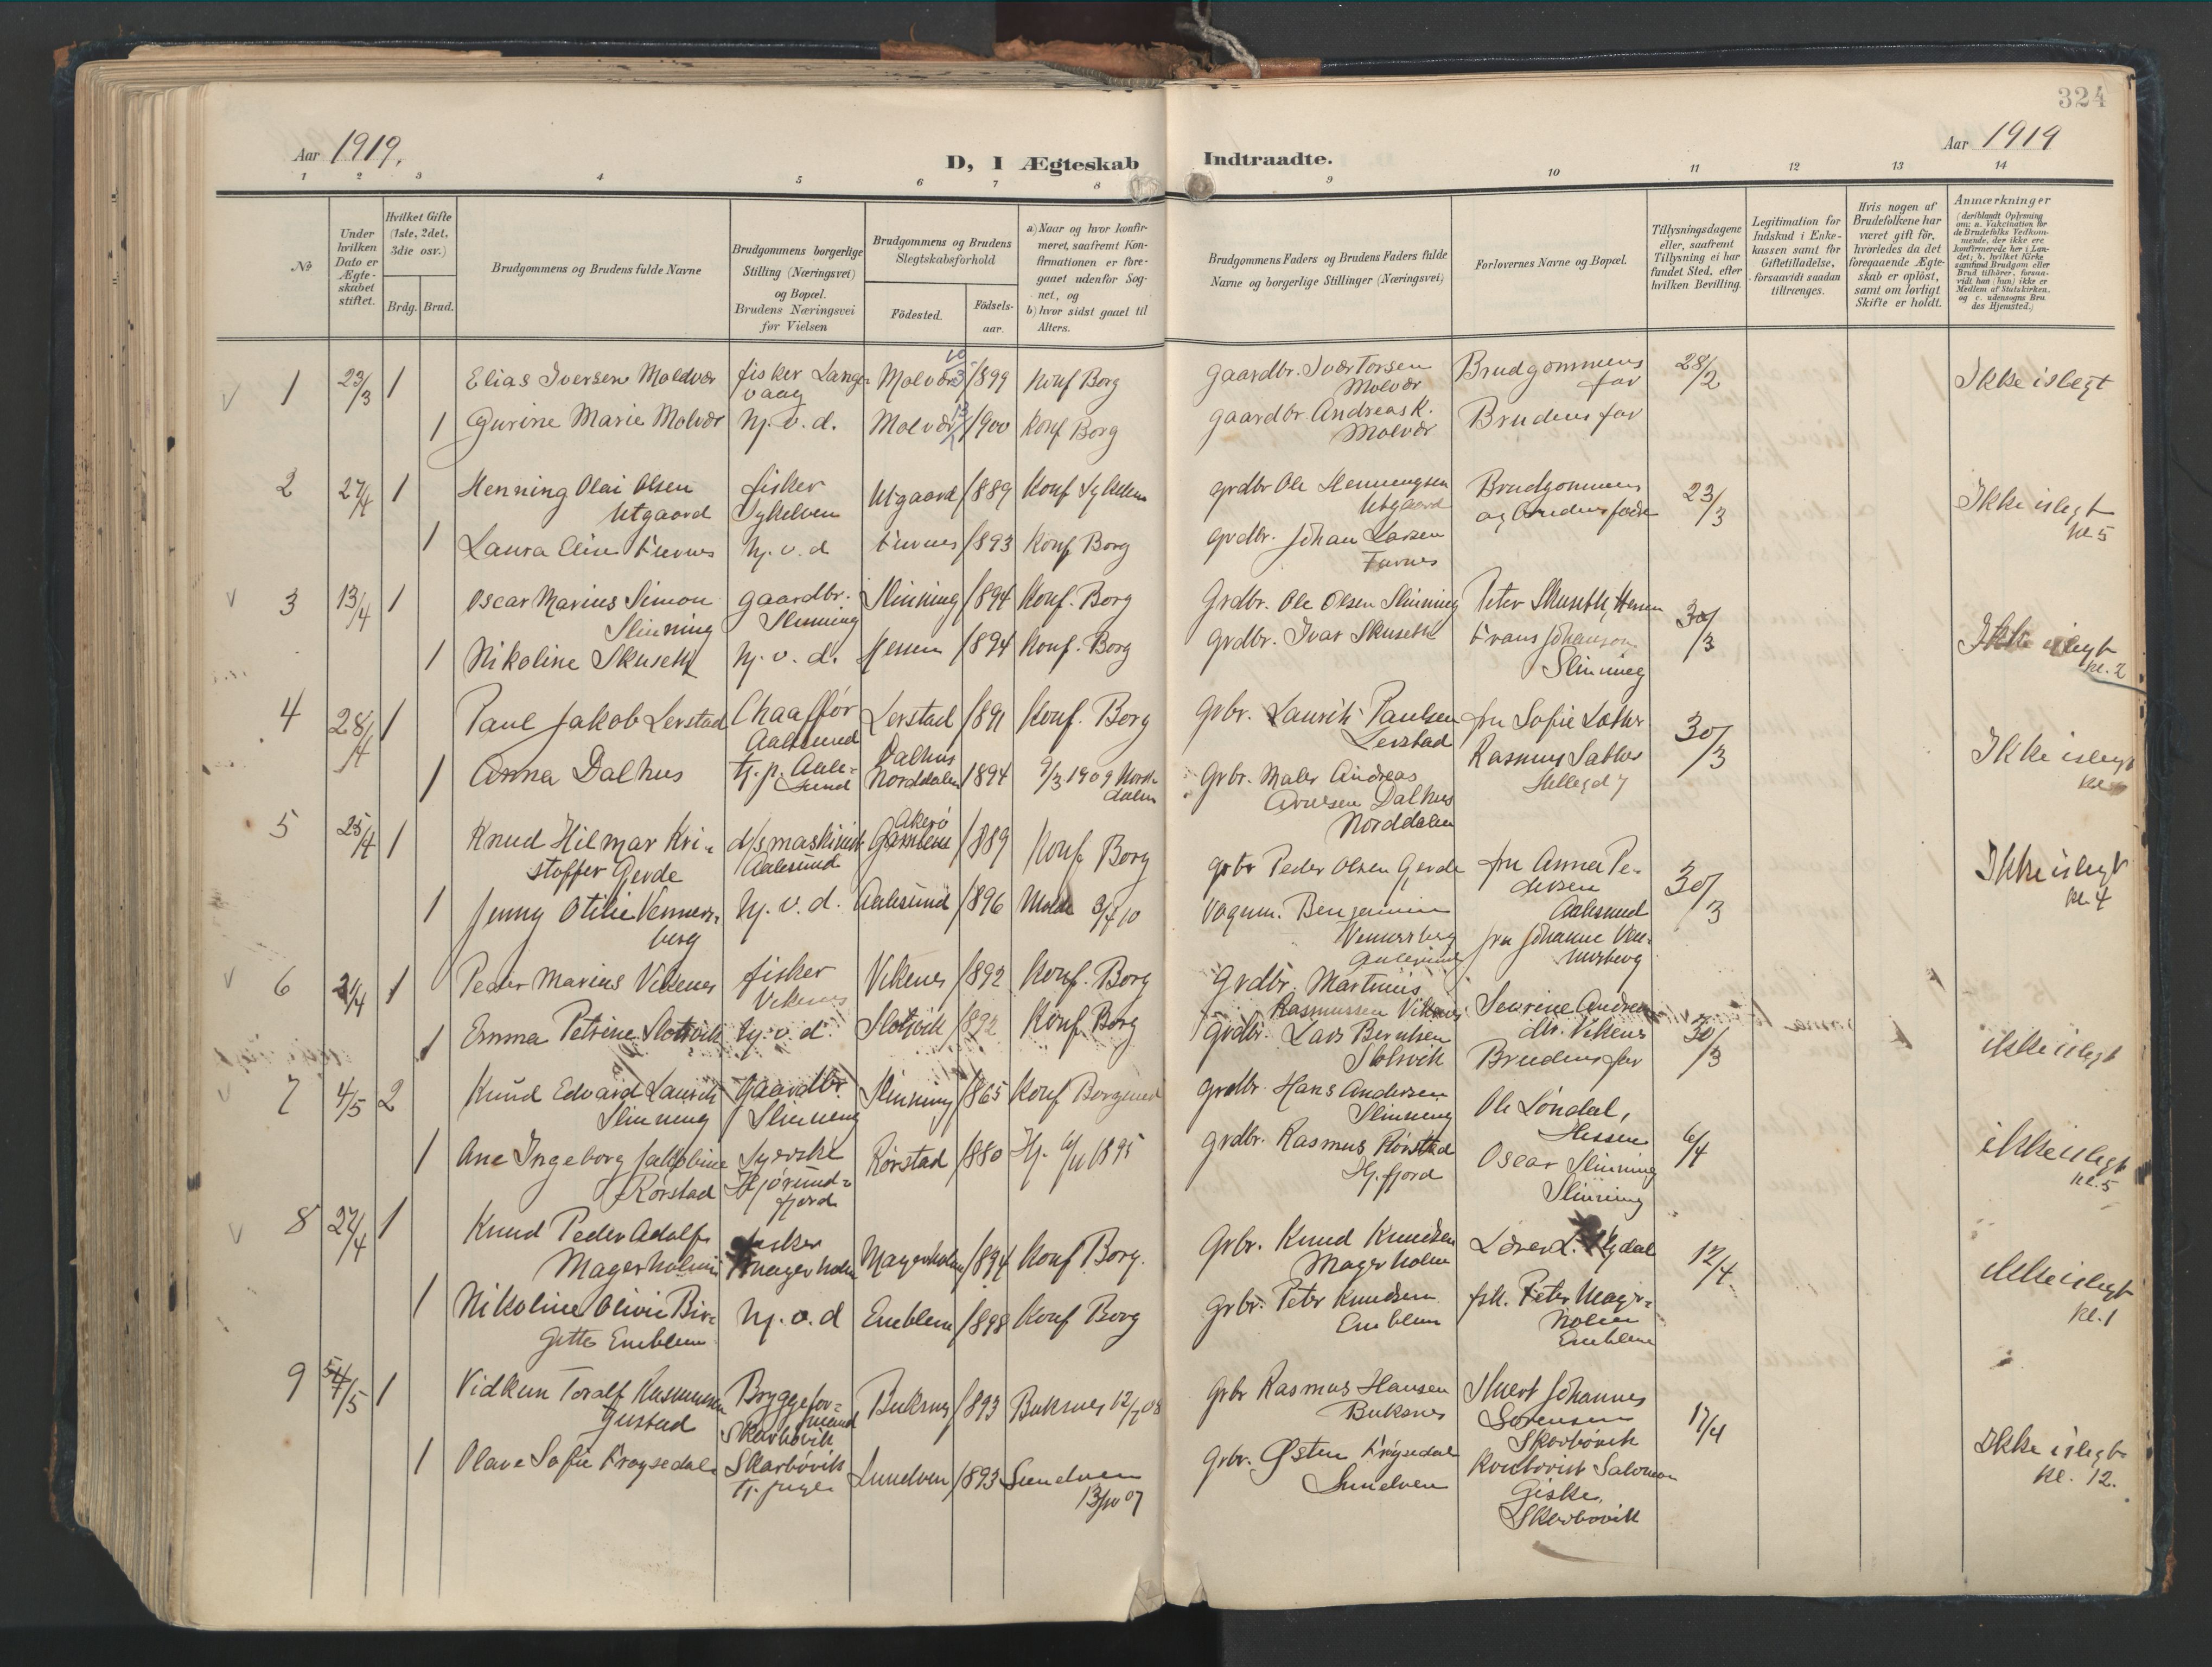 324
Aar 1919.
D, I Ægteskab
Indtraadte.
Aar 1919
1 2 3 4 5 6 7 8 9 10 11 12 13 14
No
Under hvilken Dato er Ægteskabet stiftet.
Hvilket Gifte (1ste, 2det, 3die osv.)
Brdg. Brud.
Brudgommens og Brudens fulde Navne
Brudgommens borgerlige Stilling (Næringsvei) og Bopæl. Brudens Næringsvei før Vielsen
Brudgommens og Brudens Slegtskabsforhold
Födested. Födsels-aar.
a) Naar og hvor konfirmeret, saafremt Konfirmationen er foregaaet udenfor Sognet, og b) hvor sidst gaaet til Alters.
Brudgommens Faders og Brudens Faders fulde Navne og borgerlige Stillinger (Næringsvei)
Forlovernes Navne og Bopæl.
Tillysningsdagene eller, saafremt Tillysning ei har fundet Sted, efter hvilken Bevilling.
Legitimation for Indskud i Enkekassen samt for Giftetilladelse, forsaavidt saadan tiltrænges.
Hvis nogen af Brudefolkene har været gift för, hvorledes da det foregaaende Ægteskab er oplöst, samt om lovligt Skifte er holdt.
Anmærkninger (deriblandt Oplysning om: a. Vakcination for de Brudefolks Vedkommende, der ikke ere konfirmerede her i Landet; b. hvilket Kirkesamfund Brudgom eller Brud tilhörer, forsaavidt han (hun) ikke er Medlem af Statskirken, og c. udensogns Brudes Hjemsted.)
1 23/3 1 Elias Iversen Moldvær fisker Langevaag Molvær 1899 Konf Borg gaardbr. Ivar Torsen Molvær Brudgommens far 28/2 Ikke islegt
1 Gurine Marie Molvær hj. v. d. Molvær 1900 Konf Borg gaardbr. Andreas K. Molvær Brudens far
2 27/4 1 Henning Olai Olsen Utgaard fisker Sykelven Utgaard 1889 Konf Sykelven grdbr Ole Henningsen Utgaard Brudgommens og Brudens fædre 23/3 Ikke islegt kl 5
1 Laura Eline Furnes hj. v. d Furnes 1893 Konf Borg grdbr. Johan Larsen Furnes
3 13/4 1 Oscar Marius Simon Slinning gaardbr. Slinning Slinning 1894 Konf. Borg Grdbr. Ole Olsen Slinning Peter Skuseth, Hessen 30/3 Ikke islegt kl. 2
1 Nikoline Skuseth hj. v. d. Hessen 1894 Konf. Borg grdbr. Ivar Skuseth Frans Johanson Slinning
4 28/4 1 Paul Jakob Lerstad Chaafför Aalesund Lerstad 1891 Konf. Borg Grbr. Laurits Paulsen Lerstad fru Sofie 30/3 Ikke islegt
1 Anna Dalhus tj. p. Aalesund Dalhus Norddalen 1894 9/3 1909 Norddalen Grbr. Maler Andreas Dalhus Norddalen Rasmus
5 25/4 1 Knud Hilmar Kristoffer Gerde d/s maskinist Aalesund Akerö Gamlem 1889 Konf Borg grbr Peder Olsen Gerde fru Anna Pedersen Aalesund 30/3 Ikke islegt kl. 4
1 Jenny Otilie Vennersberg hj. v. d. Aalesund 1896 Molde 3/4 10 Vognm. Benjamin Vennersberg fru Johanne Vennersberg
6 21/4 1 Peder Marius Vikenes fisker Vikenes Vikenes 1892 Konf. Borg Grdbr. Martinus Rasmussen Vikenes Severine Andreadtr. Vikenes 30/3 ikke islegt
1 Emma Petrine Slotsvik hj. v. d. Slotsvik 1892 Konf Borg Grdbr. Lars Berntsen Slotsvik Brudens far
7 4/5 2 Knud Edvard Laurits Slinning Gaardbr. Slinning Slinning 1865 Konf Borgund grdbr. Hans Andersen Slinning Ole Londal, Hessen 6/4 ikke islegt kl. 5
1 Ane Ingeborg Jakobine Rörstad Syerske Hjörundfjord Rörstad 1880 Hj. 6/11 1895 grdbr. Rasmus Rörstad Hj. fjord Oscar Slinning Slinning
8 27/4 1 Knud Peder Adolf Magerholm fisker Magerholm Magerholm 1894 Konf Borg. Grbr. Knud Knudsen Magerholm Lærer L. 12/4 ikke islegt kl. 1
1 Nikoline Olivie Birgitte Emblem hj. v. d Emblem 1898 Konf Borg grbr. Peter Knudsen Emblem fsk. Peter Magerholm Emblem
9 4/5 1 Vidkun Toralf Rasmussen Gustad Bryggeformand Skarbövik Buksnes 1893 Buksnes 12/7 08 grbr Rasmus Hansen Buksnes Sivert Johannes Sorensen Skarbövik 17/4 Ikke islegt kl. 12.
1 Olave Sofie Fröysedal Skarbövik tj. pige Sundven 1893 Sundven 13/10 07 grbr. Østen Fröysedal Sundven Salomon Giske, Skarbövik